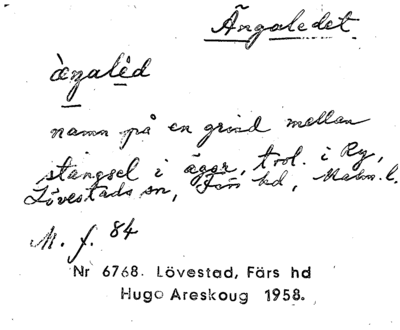 Ängaledet.
æŋaléd
namn på en grind mellan
stängsel i ägor, trol. i Ry,
Lövestads sn, Färs hd, Malm. l.
M. f. 84
Nr 6768. Lövestad, Färs hd
Hugo Areskoug 1958.